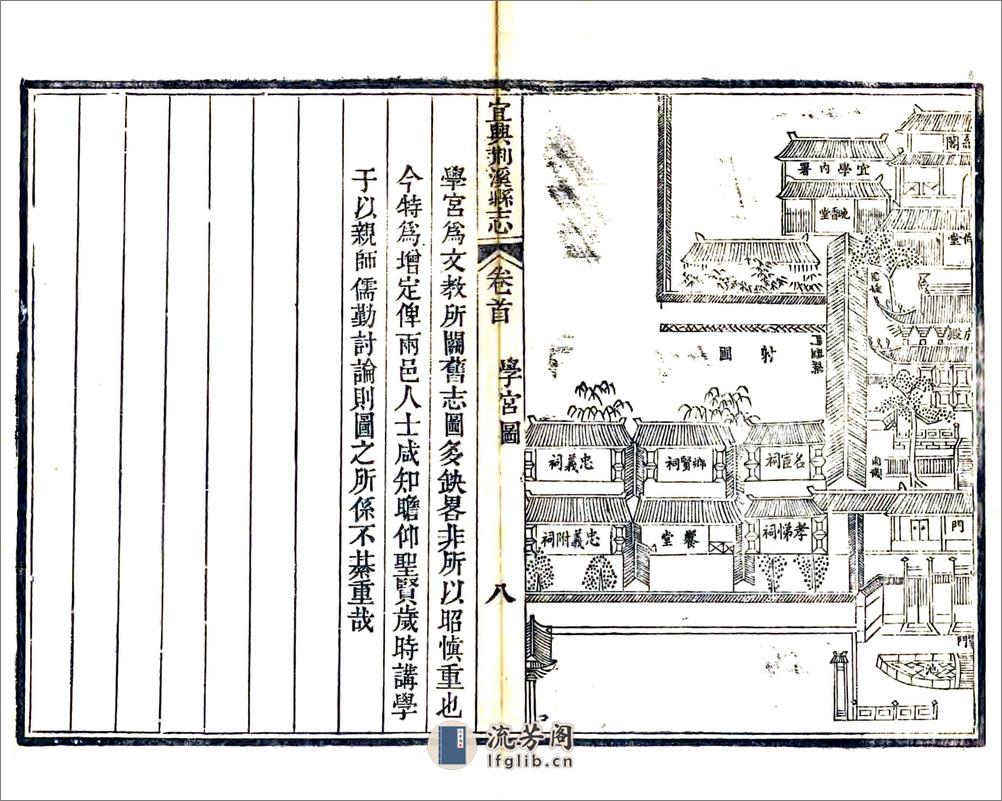 閣
宜學內署
晩香堂
堂
射圃
殿
名宦祠
鄉賢祠
忠義祠
門
孝悌祠
饗堂
忠義附祠
門
池
宜興荆溪縣志
卷首
學宮圖
八
學宮爲文教所關舊志圖多缺畧非所以昭慎重也
今特爲增定俾兩邑人士咸知瞻仰聖賢歲時講學
于以親師儒勤討論則圖之所係不綦重哉
流芳阁
lfglib.cn